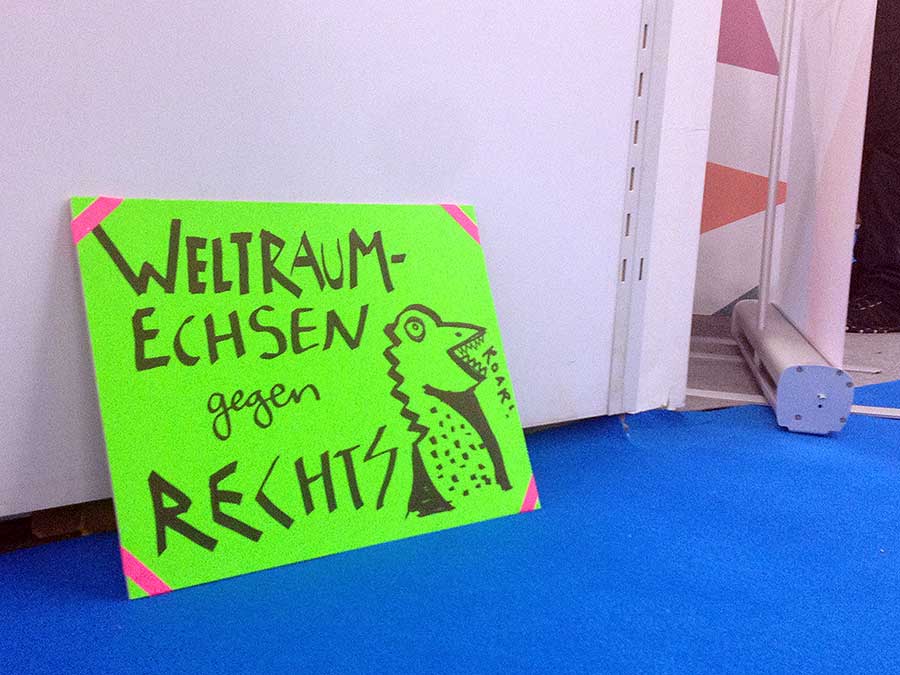 WELTRAUM-
ECHSEN
gegen
RECHTS
ROAR!